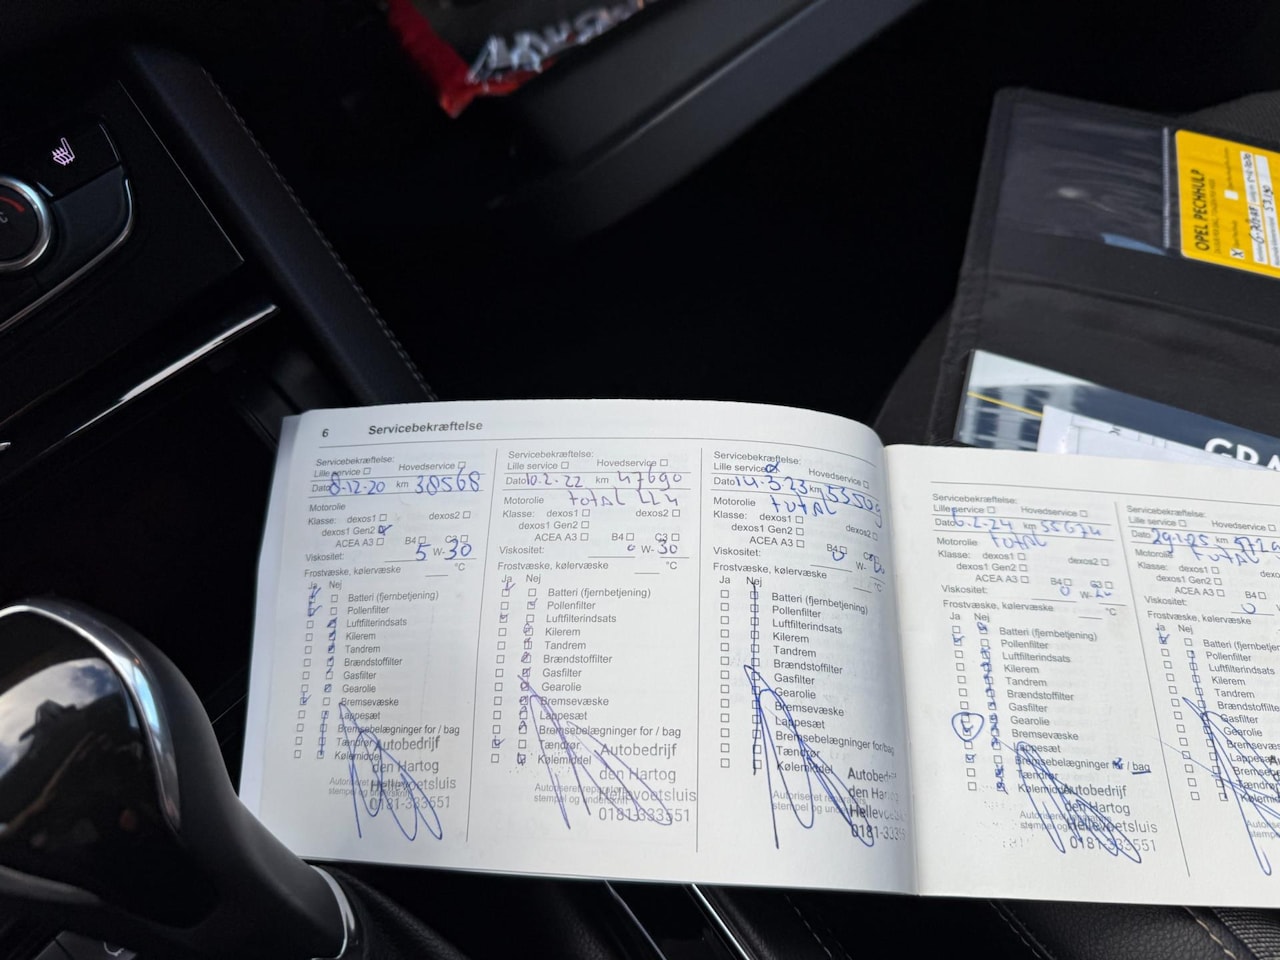 OPEL PECHHULP
GRA
6 Servicebekræftelse
Servicebekræftelse:
Lille service Hovedservice
Dato 8-12-20 km 38568
Motorolie
Klasse: dexos1 dexos2
dexos1 Gen2
ACEA A3 B4 C3
Viskositet: 5 W- 30
Frostvæske, kølervæske °C
Ja Nej
Batteri (fjernbetjening)
Pollenfilter
Luftfilterindsats
Kilerem
Tandrem
Brændstoffilter
Gasfilter
Gearolie
Bremsevæske
Lappesæt
Bremsebelægninger for / bag
Tændrør
Kølemiddel
Autobedrijf
den Hartog
Hellevoetsluis
0181-333551
Servicebekræftelse:
Lille service Hovedservice
Dato 10.2.22 km 47690
Motorolie TOTAL
Klasse: dexos1 dexos2
dexos1 Gen2
ACEA A3 B4 C3
Viskositet: 0 W- 30
Frostvæske, kølervæske °C
Ja Nej
Batteri (fjernbetjening)
Pollenfilter
Luftfilterindsats
Kilerem
Tandrem
Brændstoffilter
Gasfilter
Gearolie
Bremsevæske
Lappesæt
Bremsebelægninger for / bag
Tændrør
Kølemiddel
Autobedrijf
den Hartog
Hellevoetsluis
0181-333551
Servicebekræftelse:
Lille service Hovedservice
Dato 14-3-23 km
Motorolie TOTAL
Klasse: dexos1 dexos2
dexos1 Gen2
ACEA A3 B4
Viskositet: 0 W-
Frostvæske, kølervæske °C
Ja Nej
Batteri (fjernbetjening)
Pollenfilter
Luftfilterindsats
Kilerem
Tandrem
Brændstoffilter
Gasfilter
Gearolie
Bremsevæske
Lappesæt
Bremsebelægninger for/bag
Tændrør
Kølemiddel
den Har
0181-333
Servicebekræftelse:
Lille service Hovedservice
Dato 6-2-24 km 55674
Motorolie TOTAL
Klasse: dexos1 dexos2
dexos1 Gen2
ACEA A3 B4 C3
Viskositet: 0 W-20
Frostvæske, kølervæske °C
Ja Nej
Batteri (fjernbetjening)
Pollenfilter
Luftfilterindsats
Kilerem
Tandrem
Brændstoffilter
Gasfilter
Gearolie
Bremsevæske
Lappesæt
Bremsebelægninger / bag
Tændrør
Kølemiddel
Autobedrijf
den Hartog
Hellevoetsluis
0181-333551
Servicebekræftelse:
Lille service Hovedservice
Dato 29-1-25 km
Motorolie TOTAL
Klasse: dexos1
dexos1 Gen2
ACEA A3 B4
Viskositet: 0
Frostvæske, kølervæske
Ja Nej
Batteri (fjernbetjening
Pollenfilter
Luftfilterindsats
Kilerem
Tandrem
Brændstoffilter
Gasfilter
Gearolie